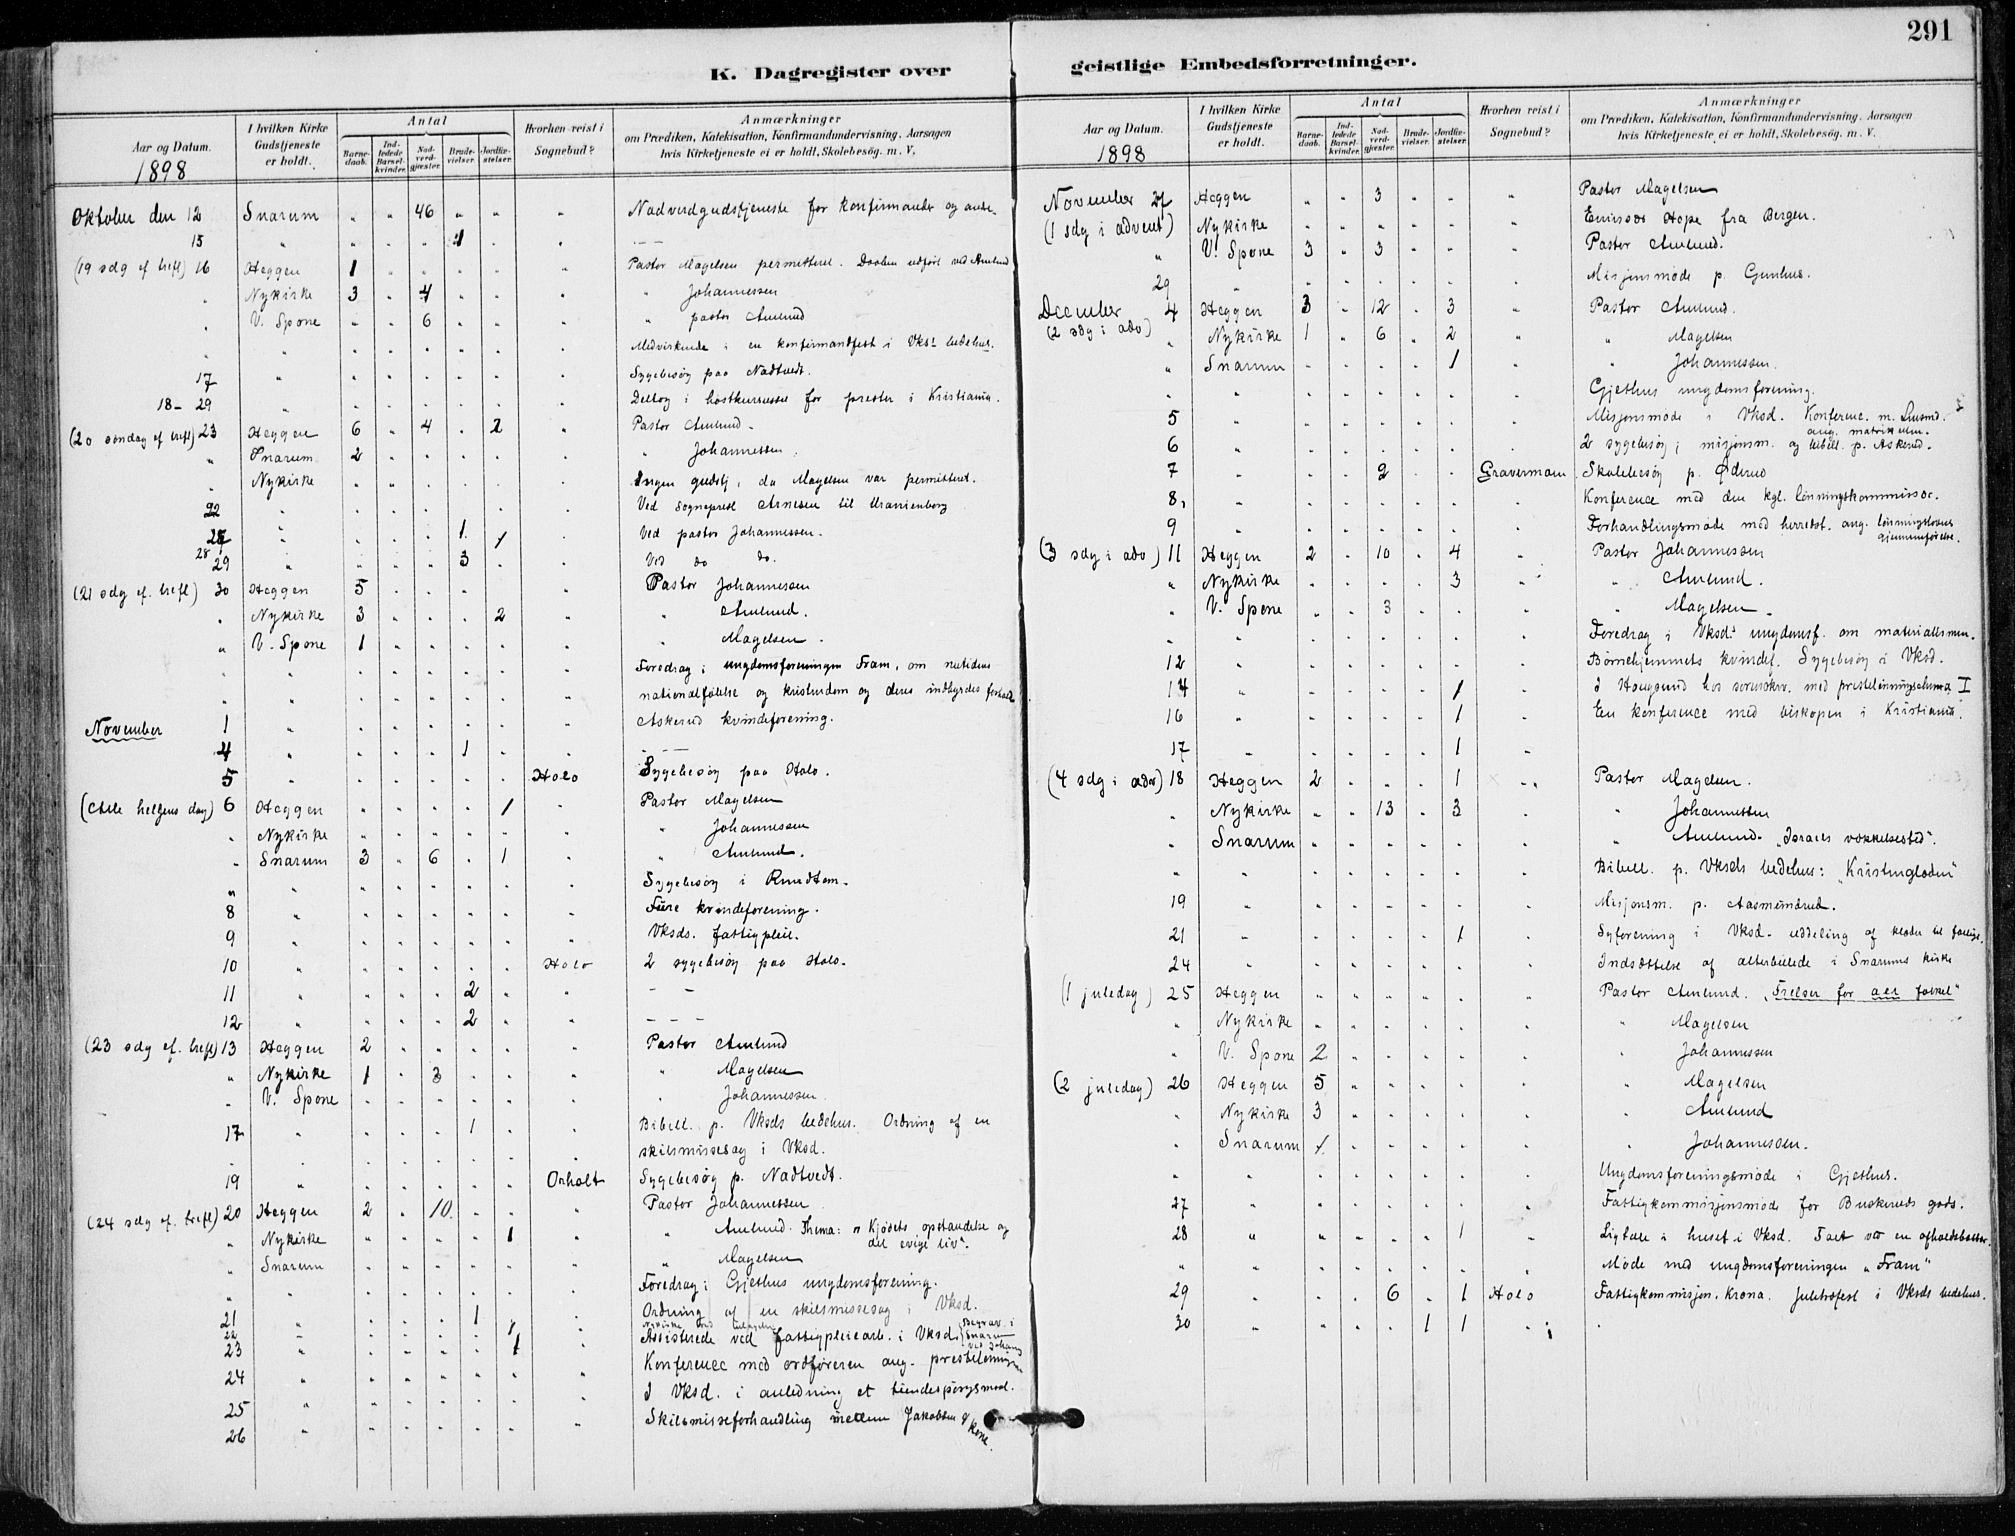 291
K. Dagregister over geistlige Embedsforretninger.
Aar og Datum. 1898
I hvilken Kirke Gudstjeneste er holdt.
Antal
Barnedaab.
Indledede Barselkvinder.
Nadverdgjæster.
Brudevielser.
Jordfæstelser.
Hvorhen reist i Sognebud?
Anmærkninger
om Prædiken, Katekisation, Konfirmandundervisning, Aarsagen
hvis Kirketjeneste ei er holdt, Skolebesög. m. V.
Oktober den 12 Snarum " " 46 " " " Nadverdgudstjeneste for konfirmander og andre.
15 " " " " 1 " " - -
(19 sdg ef trefl) 16 Heggen 1 " " " " " Pastor Magelsen permitteret. Daaben udført ved Amlund
" Nykirke 3 " 4 " " " " Johannessen
" V. Spone " " 6 " " " " pastor Amlund
" " Medvirkende i en konfirmandfest i Vksd bedehus.
17 " Sygebesøg paa Nadtvedt.
18-29 " Deltog i høstkursuset for prester i Kristiania.
(20 søndag ef trefl) 23 Heggen 6 " 4 " 2 " Pastor Amlund.
" Snarum 2 " " Johannessen
" Nykirke " Ingen gudstj, da Magelsen var permitteret.
22 " Ved sogneprest Arnesen til Uranienborg
27 " 1 1 Ved pastor Johannessen.
28
29 " 3 Ved do do.
(21 sdg ef. trefl) 30 Heggen 5 Pastor Johannessen
" Nykirke 3 " " " 2 " Amlund.
" V. Spone 1 " Magelsen.
" " Foredrag i ungdomsforeningen Fram, om nutidens
" " nationalfølelse og kristendom og deres indbyrdes forhold
November 1 " Askerud kvindeforening.
4 " 1 - -
5 " Holo Sygebesøg paa Holo.
(Alle helgens dag) 6 Heggen " " " " 1 " Pastor Magelsen
" Nykirke " Johannessen
" Snarum 3 " 6 " 1 " " Amlund.
" " Sygebesøg i
8 " Fure kvindeforening.
9 " Vksds. fattigpleie.
10 " Holo 2 sygebesøg paa Holo.
11 " 2 - -
12 " 2 - - -
(23 sdg ef. trefl) 13 Heggen 2 Pastor Amlund
" Nykirke 1 " 3 " Magelsen
" V. Spone " Johannessen.
17 " 1 Bibell. p. Vksds bedehus. Ordning af en
" skilsmissesag i Vksd.
19 " Orholt Sygebesøg p. Nadtvedt.
(24 sdg ef. trefl) 20 Heggen 2 " 10 Pastor Johannessen
" Nykirke " " " " 1 " " Amlund. Thema: "Kjødets opstandelse og
det evige liv".
" Snarum " Magelsen
" " Foredrag i Gjethus ungdomsforening.
21 " 1 Ordning af en skilsmissesag i Vksd.
22
23 " 1 Assisterede ved fattigpleiearb. i Vksd. Begrav. i Snarum ved Johann
24 " Konference med ordføreren ang. prestelønningen
25 " I Vksd. i anledning et tiendespørgsmaal.
26 " Skilsmisseforhandling mellem Jakobsen & kone.
Aar og Datum. 1898
I hvilken Kirke Gudstjeneste er holdt.
Antal
Barnedaab.
Indledede Barselkvinder.
Nadverdgjæster.
Brudevielser.
Jordfæstelser.
Hvorhen reist i Sognebud?
Anmærkninger
om Prædiken, Katekisation, Konfirmandundervisning. Aarsagen
hvis Kirketjeneste ei er holdt, Skolebesög. m. V.
November 27 Heggen " " 3 " " " Pastor Magelsen
(1 sdg i advent) Nykirke Emissær Hope fra Bergen.
" V. Spone 3 " 3 " " " Pastor Amlund.
29 " Misjonsmøde p. Gunhus.
December 4 Heggen 3 " 12 " 3 " Pastor Amlund.
(2 sdg i adv) " Nykirke 1 " 6 " 2 " " Magelsen
" Snarum " " " " 1 " Johannessen.
" Gjethus ungdomsforening.
5 " Misjonsmøde i Vksd. Konferenc. m. Lensmd.
ang. matrikulen.
6 " 2 sygebesøg; misjonsm. og bibell. p. Askerud.
7 " 2 Gravermoen Skolebesøg p. Øderud
8, " Konference med den kgl. lønningskommissær.
9 " Forhandlingsmøde med herredst. ang. lønningslovens
gjennemførelse.
(3 sdg i adv) 11 Heggen 2 " 10 " 4 " Pastor Johannessen
" Nykirke 3 " Amlund.
" V. Spone " " 3 " Magelsen.
" " Foredrag i Vksds ungdomsf. om materialismen.
12 " Børnehjemmets kvindef. Sygebesøg i Vksd.
14 " 1 I Hougsund hos sorenskrv. med prestelønningschema I
16 " 1 En konference med biskopen i Kristiania.
17 " 1
(4 sdg i adv) 18 Heggen 2 " " " 1 " Pastor Magelsen.
" Nykirke " " 13 " 3 " Johannessen
" Snarum " Amlund. "Israels vækkelsestid".
" " Bibell. p. Vksds bedehus: "Kristenglæden"
19 " Misjonsm. p. Aasmundrud.
21 " 1 Syforening i Vksd. uddeling af klæder til fattige.
24 " Indsættelse af alterbillede i Snarums kirke
(1 juledag) 25 Heggen Pastor Amlund. "Frelser for alt folket"
" Nykirke " Magelsen
" V. Spone 2 " Johannessen
(2 juledag) 26 Heggen 5 " Magelsen
" Nykirke 3 " Amlund
" Snarum 1 " Johannessen.
" " Ungdomsforeningsmøde i Gjethus.
27 " Fattigkommisjonsmøde for Buskeruds gods.
28 " 1 Ligtale i huset i Vksd. Talt ved en afholdsbasar.
" " Møde med ungdomsforeningen "Fram"
29 " 6 " 1 Holo Fattigkommisjon. Krona. Juletræfest i Vksds bedehus.
30 " 1 1 "